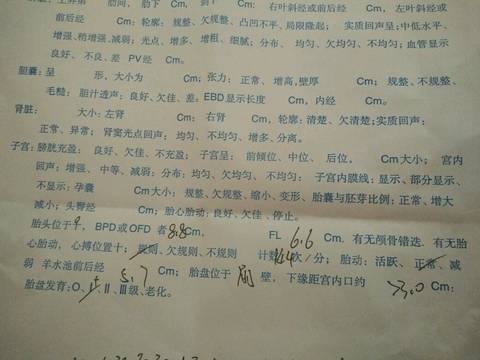 肋间， 肋下 Cm， 右叶斜经或前后经 Cm， 左叶斜经或
前后经 Cm：轮廓：规整、欠规整、凸凹不平、局限隆起； 实质回声呈：中低水平、
增强、稍增强、减弱；光点、增多、增粗、细腻；分布、 均匀、欠均匀、不均匀；血管显示
良好、 不良、差 PV经 Cm。
胆囊：呈 形，大小为 Cm；张力：正常、增高，壁厚 Cm； 规整、不规整、
毛糙； 胆汁透声：良好、欠佳、差。EBD显示长度 Cm，内经 Cm。
肾脏： 大小：左肾 Cm； 右肾 Cm，轮廓：清楚、欠清楚；实质回声：
正常、异常； 肾窦光点回声： 均匀、不均匀、增多、分离。
子宫：膀胱充盈： 良好、 欠佳、不充盈；子宫呈： 前倾位、中位、 后位， Cm大小； 宫内
回声：增强、 中等、减弱；分布：均匀、欠均匀、不均匀； 子宫内膜线：显示、部分显示、
不显示；孕囊 Cm大小； 规整、欠规整、缩小、变形、胎囊与胚芽比例：正常、增大
减小；头臀经 Cm；胎心胎动：良好、欠佳 、停止。
胎头位于 BPD或OFD 者8.8cm， FL 6.6 Cm. 有无颅骨错迭. 有无胎
心胎动， 心搏位置十； 规则、欠规则、不规则 计数144次／分； 胎动：活跃、 正常、减
弱 羊水池前后经 5.7 Cm； 胎盘位于 前 壁，下缘距宫内口约 >3.0 Cm；
胎盘发育：O、I、Ⅱ、Ⅲ级、老化。